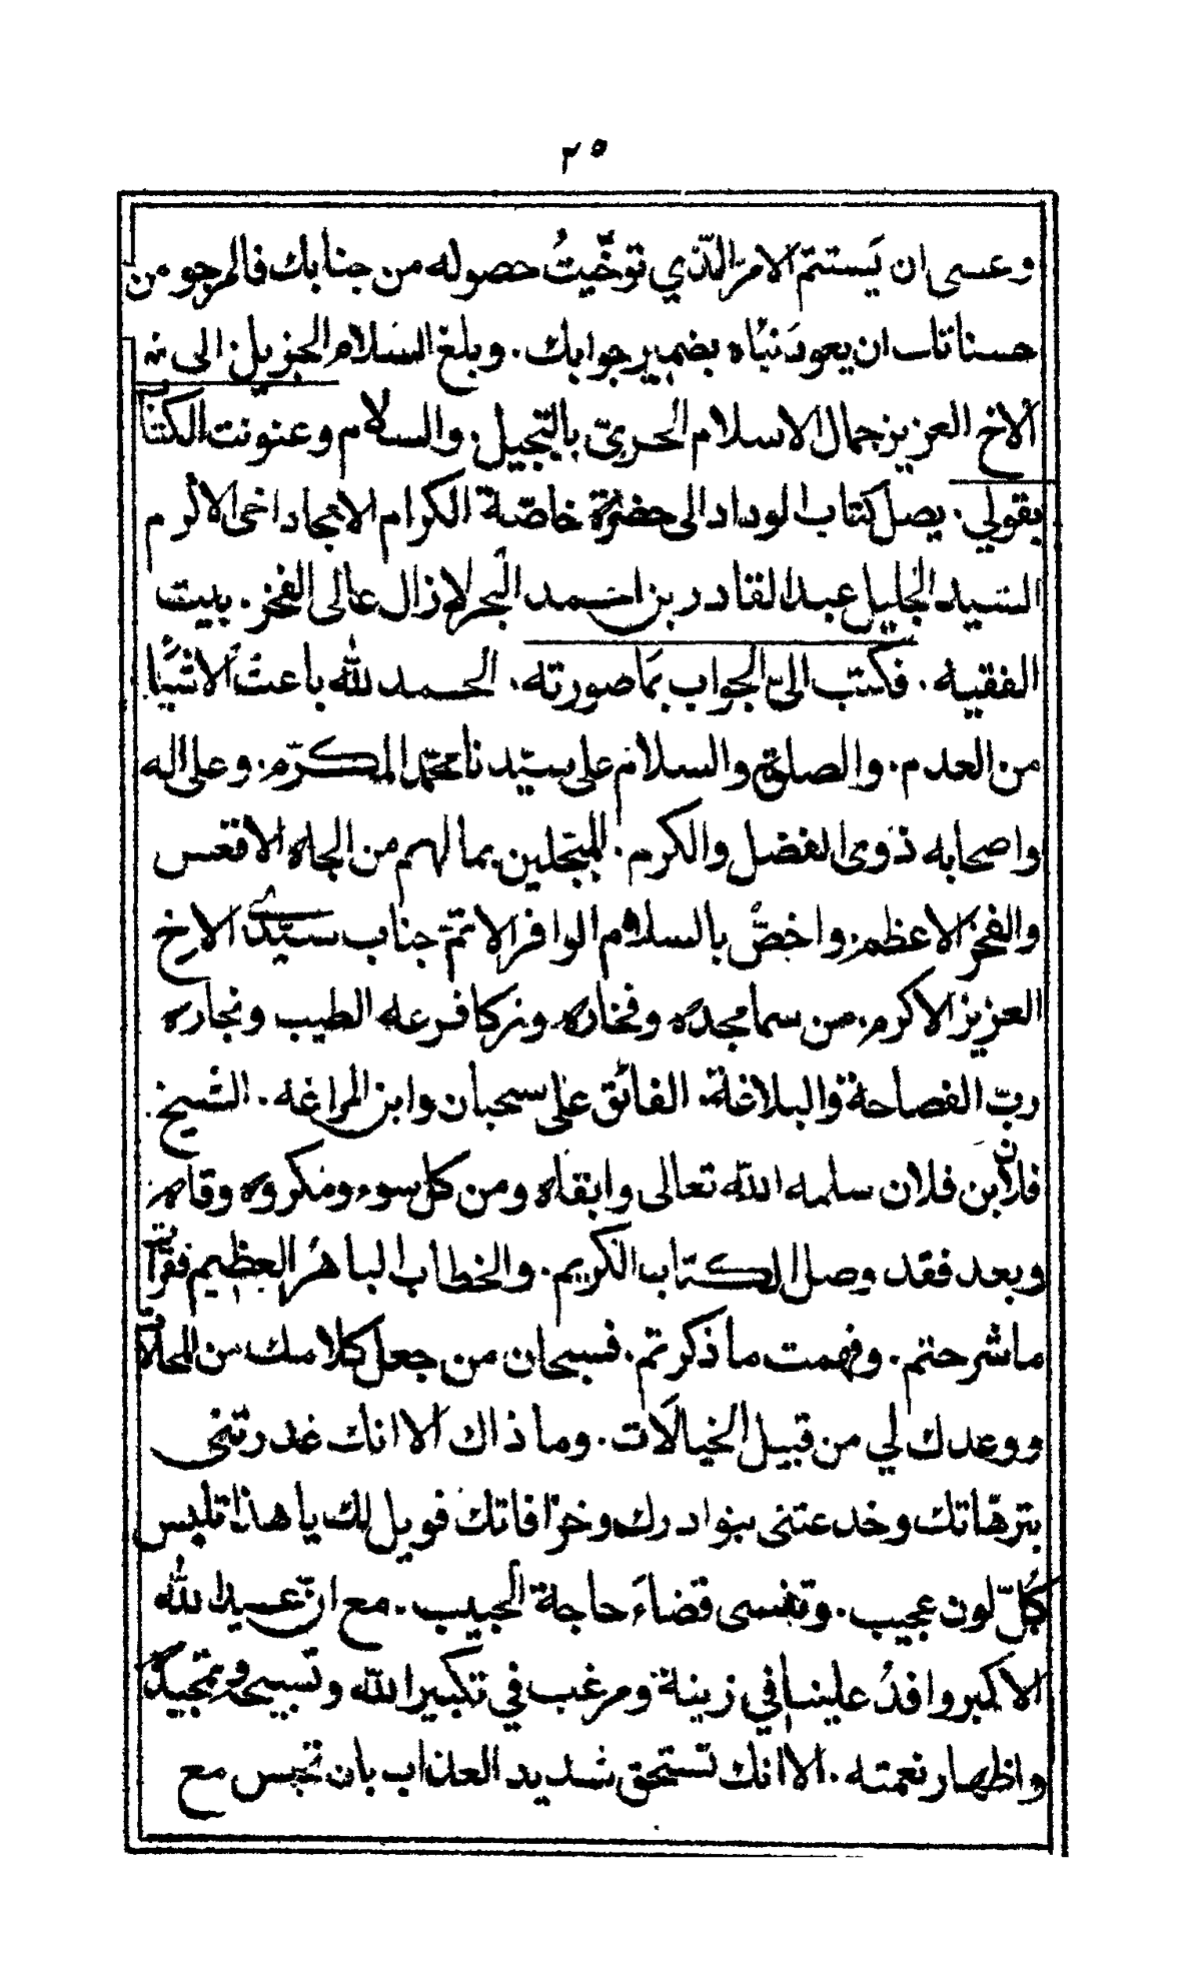 ٢٥
وعسى ان يَستتمّ الامرُ الّذي توخّيتُ حصوله من جنابك فالمرجو من
حسناتك ان يعودَ نبّاه بضمير جوابك. وبلغ السلام الجزيل الى
الاخ العزيز جمال الاسلام الحربيّ بالتبجيل. والسلام وعنونت الكتاب
بقولي. يصل كتاب الوداد الى حضرة خاصّة الكرام الامجاد اخى الاكرم
السّيد الجليل عبد القادر بن احمد البحر لا زال عالى الفخر. ببيت
الفقيه. فكتب اليّ الجواب بمَا صورته. الحمد لله باعث الاشيَاء
من العدم. والصلوة والسلام على سيّدنا محمّد المكرّم. وعلى اله
واصحابه ذوى الفضل والكرم. المبجّلين بما لهم من الجاه الاقعس
والفخر الاعظم. واخصّ بالسلام الوافر الاتمّ جناب سيّدى الاخ
العزيز الاكرم. من سما مجده وفخاره. وزكا فرعه الطيب ونجاره
ربّ الفصاحة والبلاغة. الفائق على سحبان وابن المراغه. الشيخ
فلان بن فلان سلمه الله تعالى وابقاه ومن كل سوء ومكروه وقاه.
وبعد فقد وصل الكتاب الكريم. والخطاب الباهر العظيم فقرأت
ما شرحتم. وفهمت ما ذكرتم. فسبحان من جعل كلامك من المحالات
ووعدك لي من قبيل الخيالَات. وما ذاك الا انك غدرتنى
بترهّاتك وخدعتنى بنوادرك وخرافاتك فويل لك يا هذا تلبس
كلّ لون عجيب. وتنسى قضاءَ حاجة الحبيب. مع انّ عيد الله
الاكبر وافدُ علينا في زينة ومرغب في تكبير الله وتسبيحه وتمجيده
واظهار نعمته. الا انك تستحق شديد العذاب بان تحبس مع